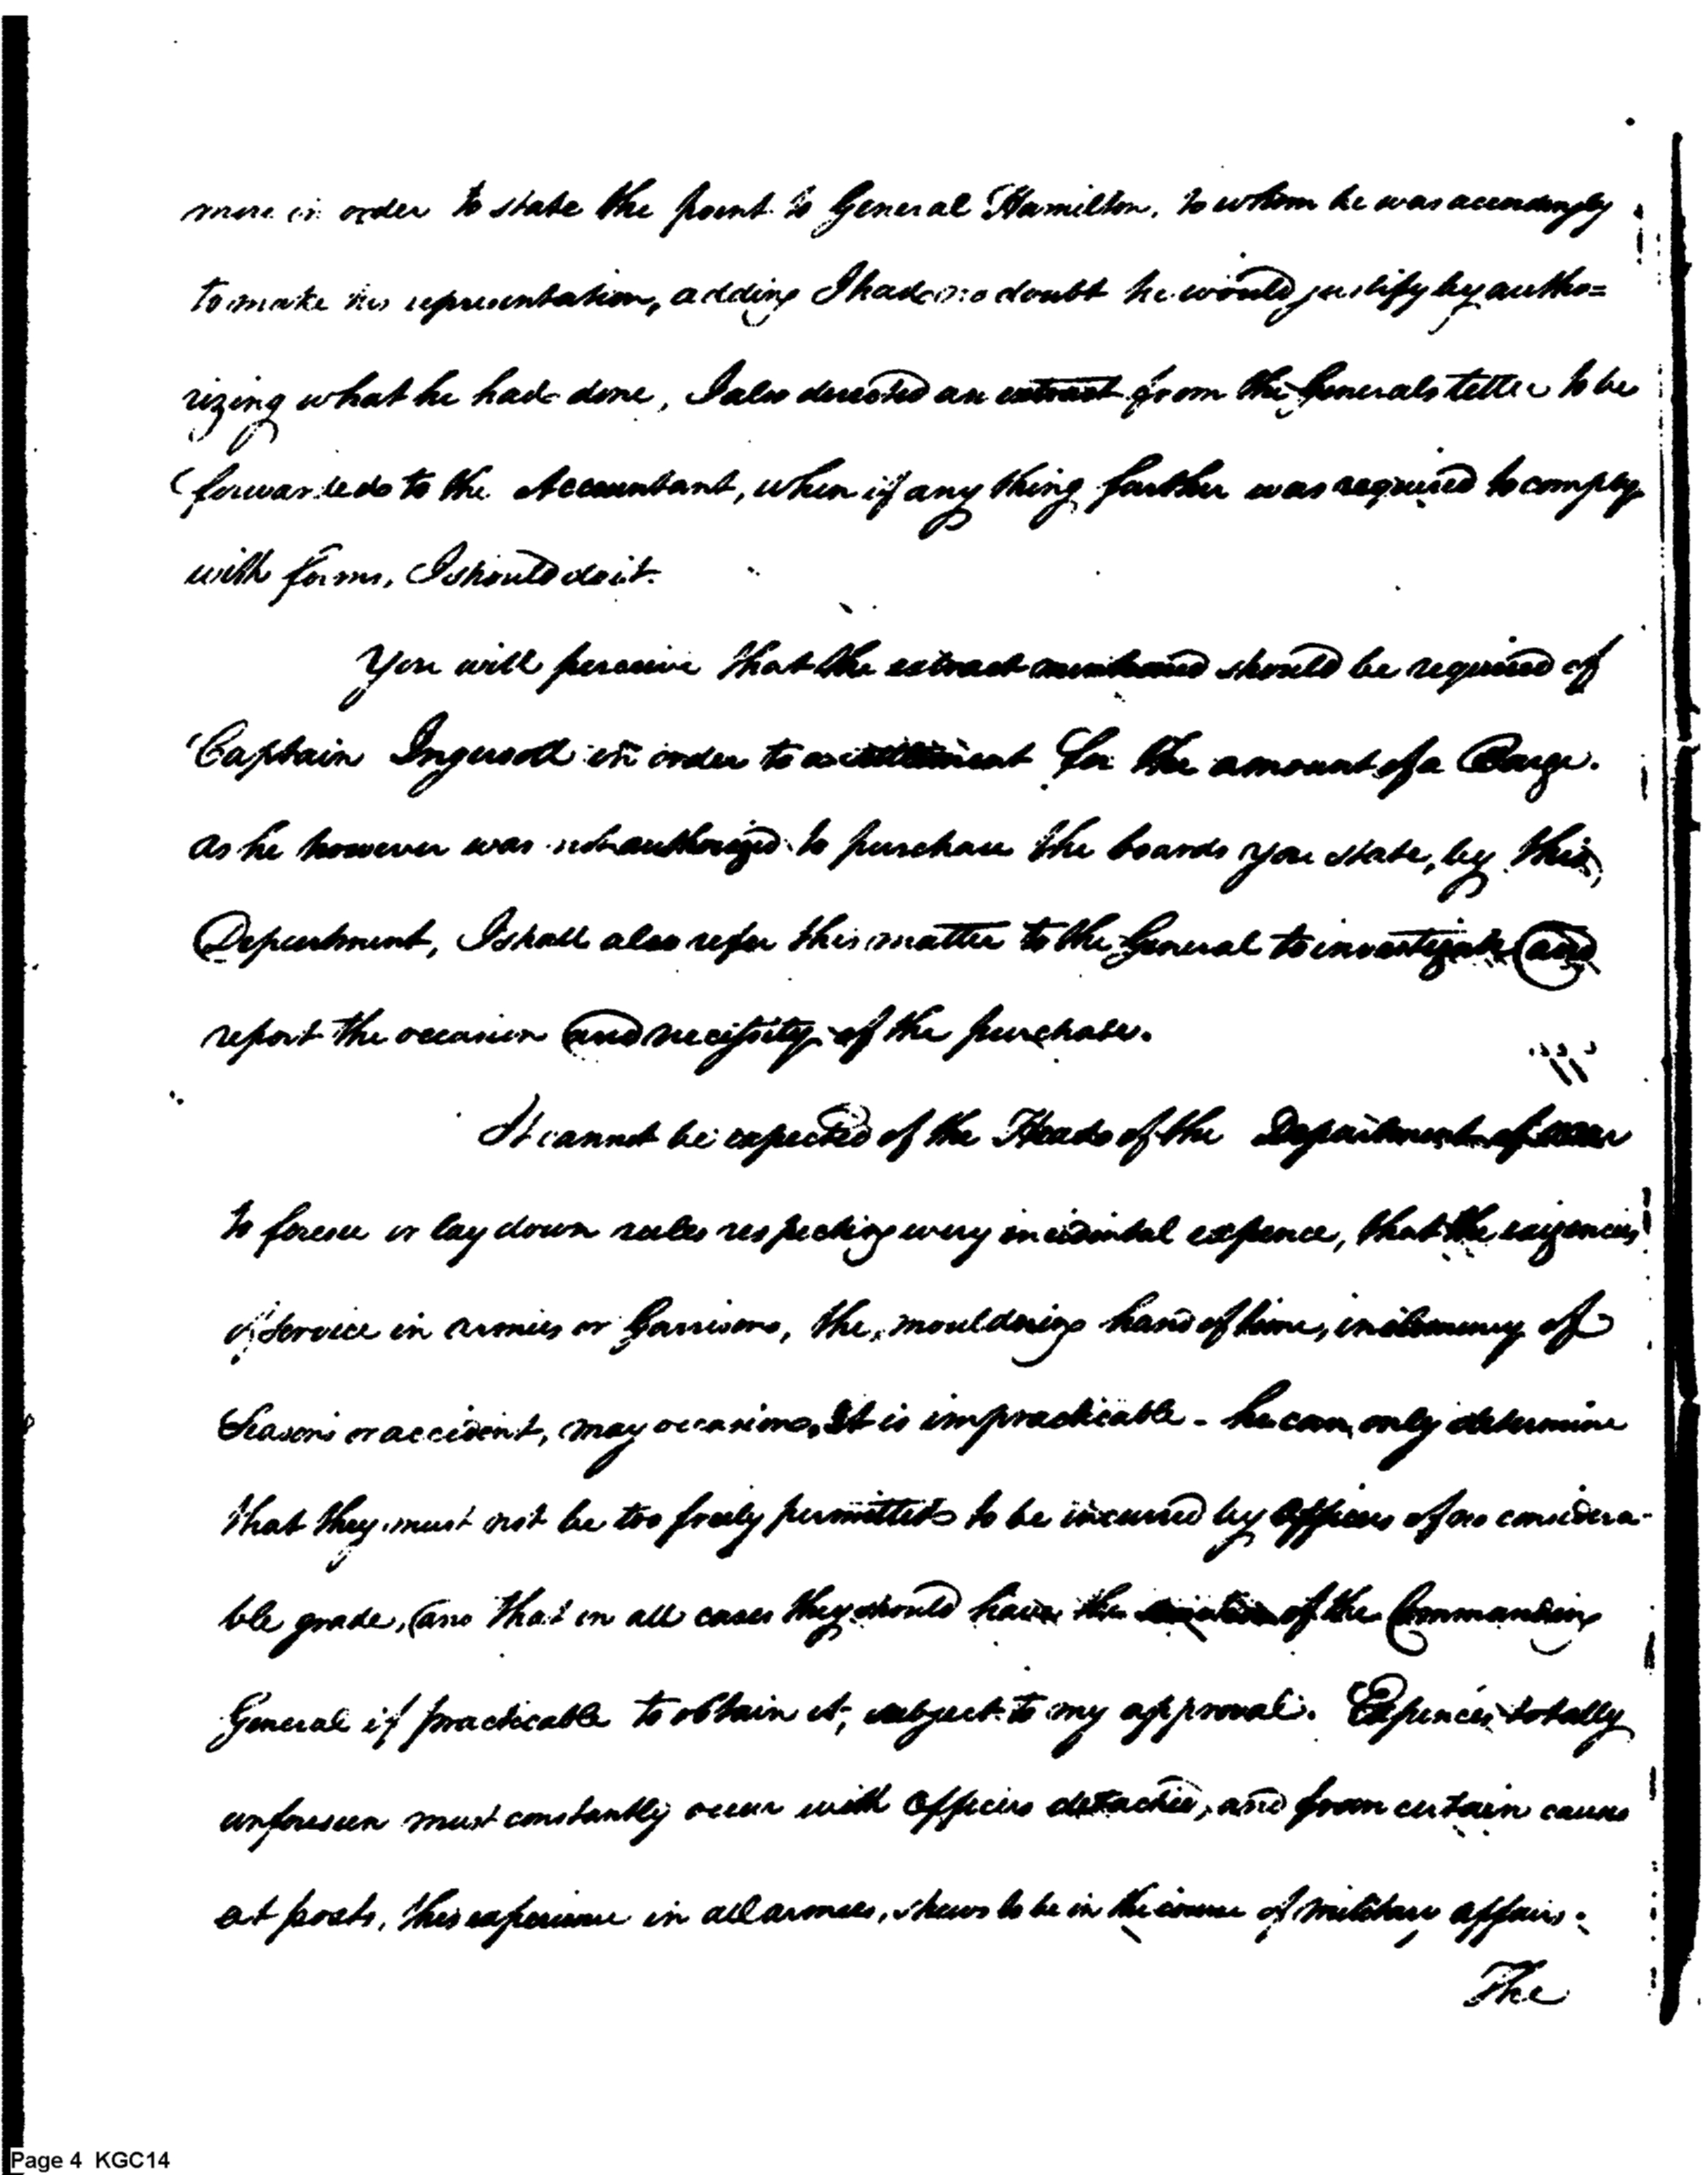 more in order to state the point to General Hamilton, to whom he was accordingly
to make his representation, adding I had no doubt he would justify by autho=
rizing what he had done, I also directed an extract from the Generals letter to be
forwarded to the Accountant, when if any thing farther was required to comply
with forms, I should do it.
You will perceive that the extract mentioned should be required of
Captain Ingersoll in order to a settlement for the amount of a Barge.
as he however was not authorized to purchase the boards you state, by this
Department, I shall also refer this matter to the General to investigate and
report the occasion and necessity of the purchase.
It cannot be expected of the Heads of the Department of war
to foresee or lay down rules respecting every incidental expence, that the exigencies
of Service in armies or Garrisons, the mouldring hand of time, inclemency of
Seasons or accident, may occasion, It is impracticable - he can only determine
that they must not be too freely permitted to be incurred by Officers of no considera-
ble grade, and that in all cases they should have the of the Commanding
General if practicable to obtain it, subject to my approval. Expences totally
unforeseen must constantly occur with Officers detached, and from certain causes
at posts, this experience in all armies, shews to be in the course of military affairs.
The
Page 4 KGC14